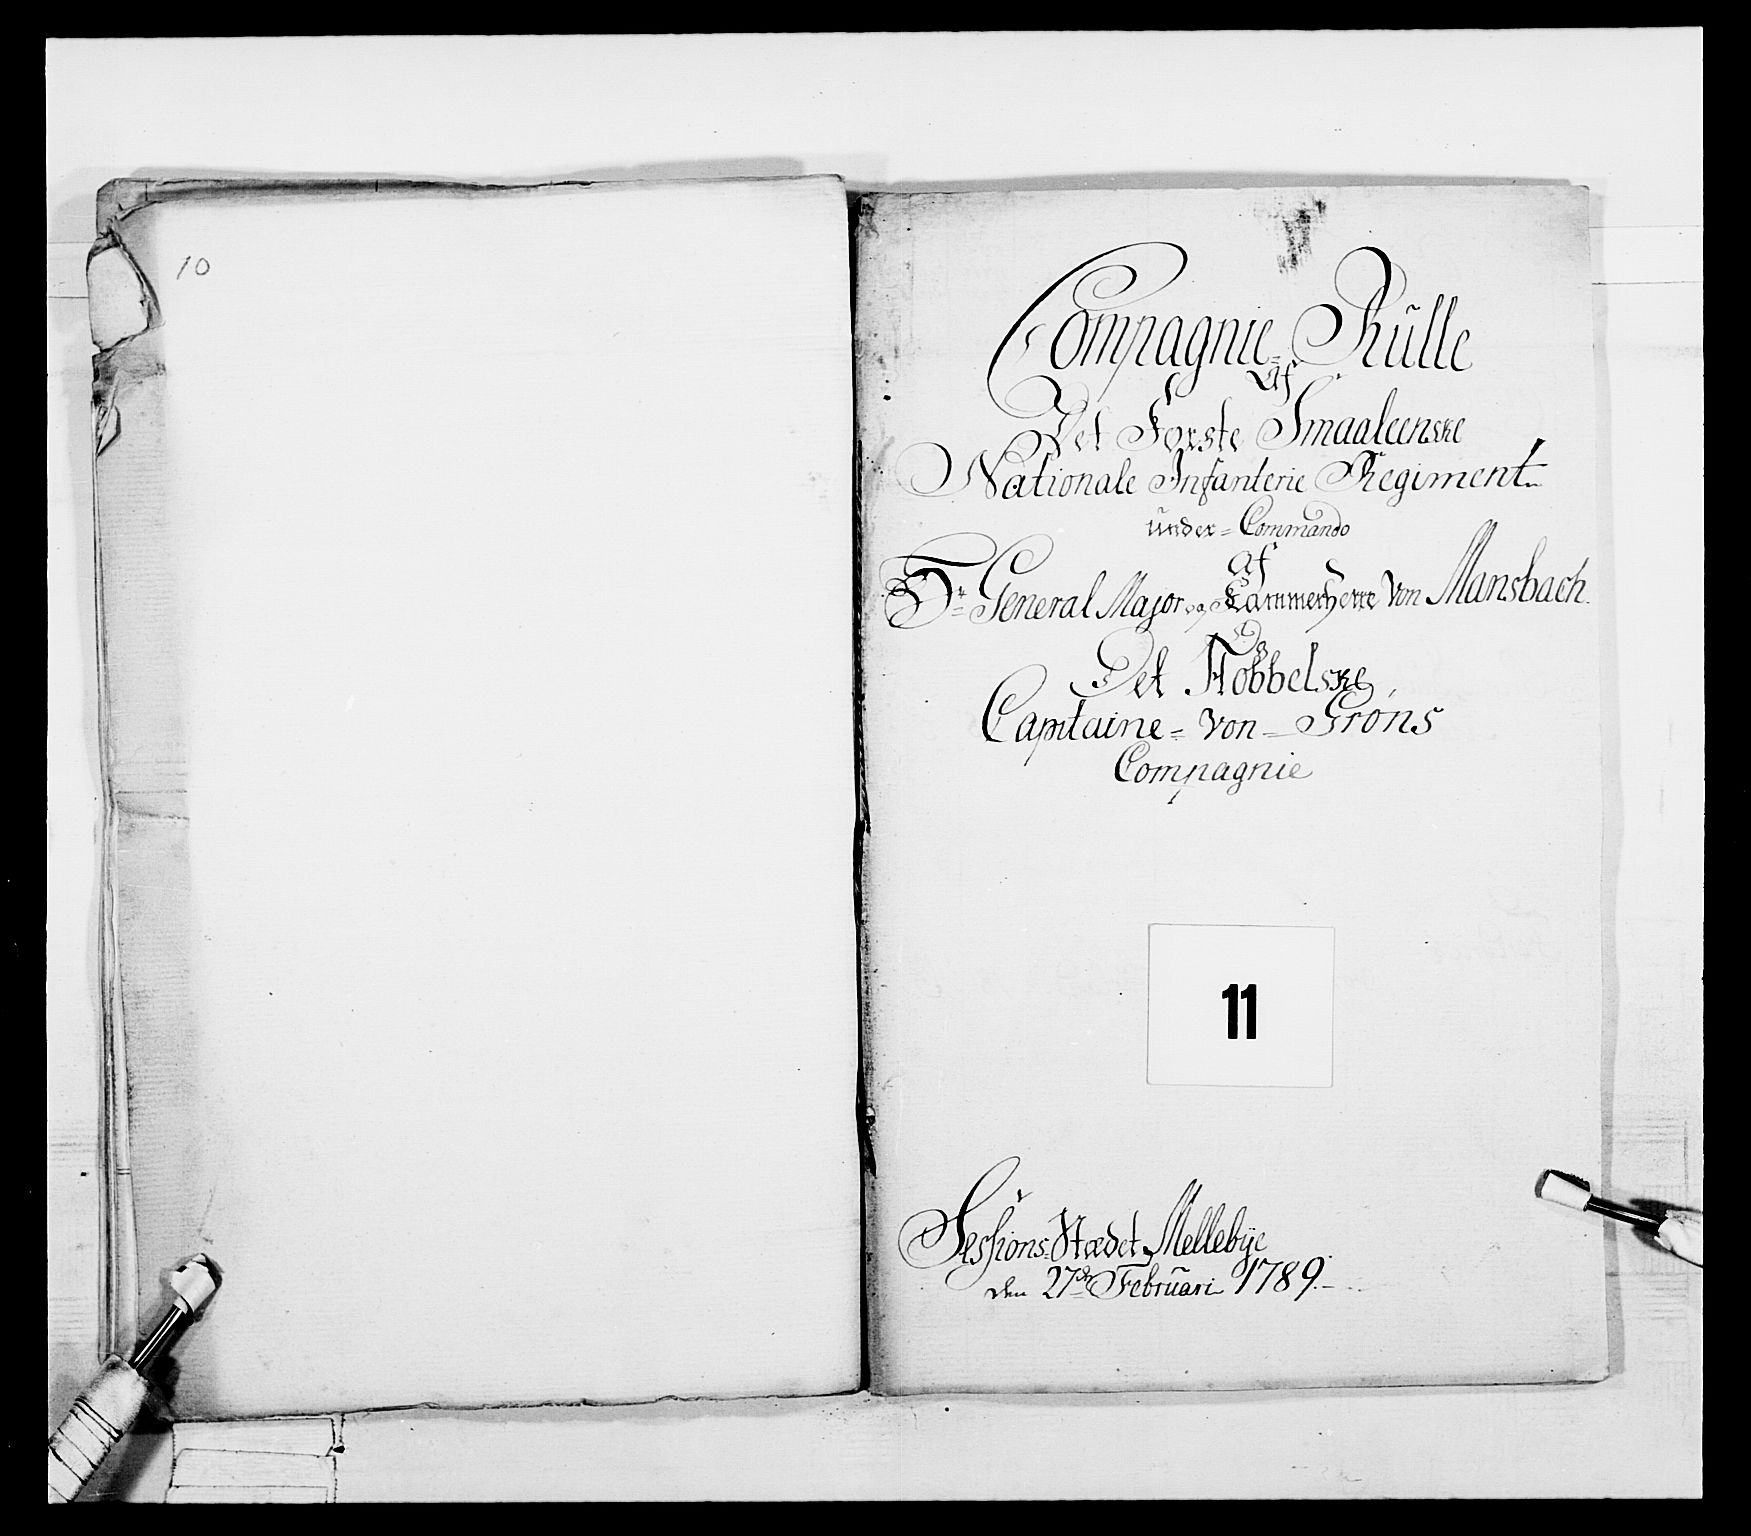 10
Compagnie = Rülle
Af
Det Første Smaaleenske
Nationale Infanterie Regiment
ünder = Commando
af
Hr General Major og Kammerherre Von Mansbach
Det Höbbelske
Capitaine = Von = Gröns
Compagnie
11
Sessions-Stædet Mellebÿe
den 27de Februari 1789.